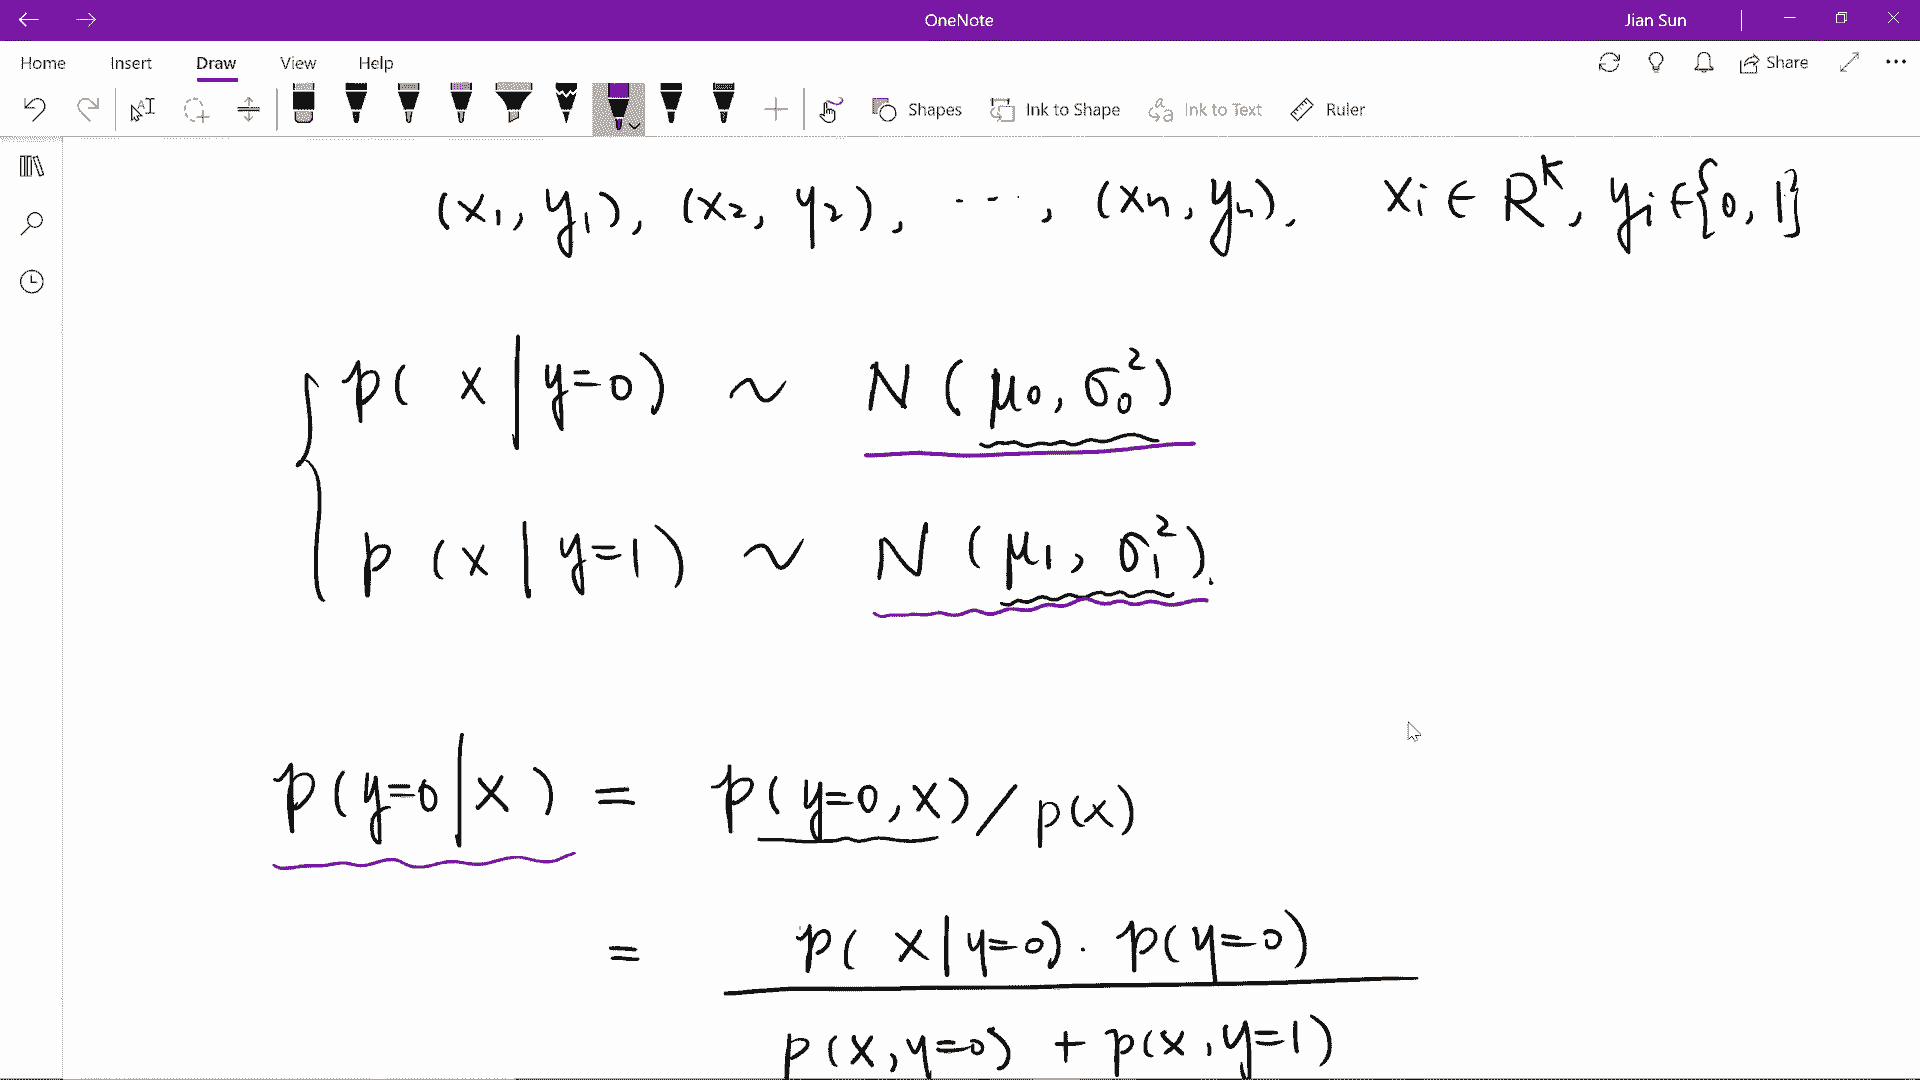 OneNote
Jian Sun
Home Insert Draw View Help
Share
Shapes Ink to Shape Ink to Text Ruler
(x₁, y₁), (x₂, y₂), ⋯, (xₙ, yₙ). xᵢ ∈ Rᴷ, yᵢ ∈ {0, 1}
p( x | y=0) ~ N ( μ₀, σ₀²)
p (x | y=1) ~ N ( μ₁, σ₁²).
p(y=0 | x) = p(y=0, x) / p(x)
= p( x | y=0) · p(y=0)
p(x, y=0) + p(x, y=1)